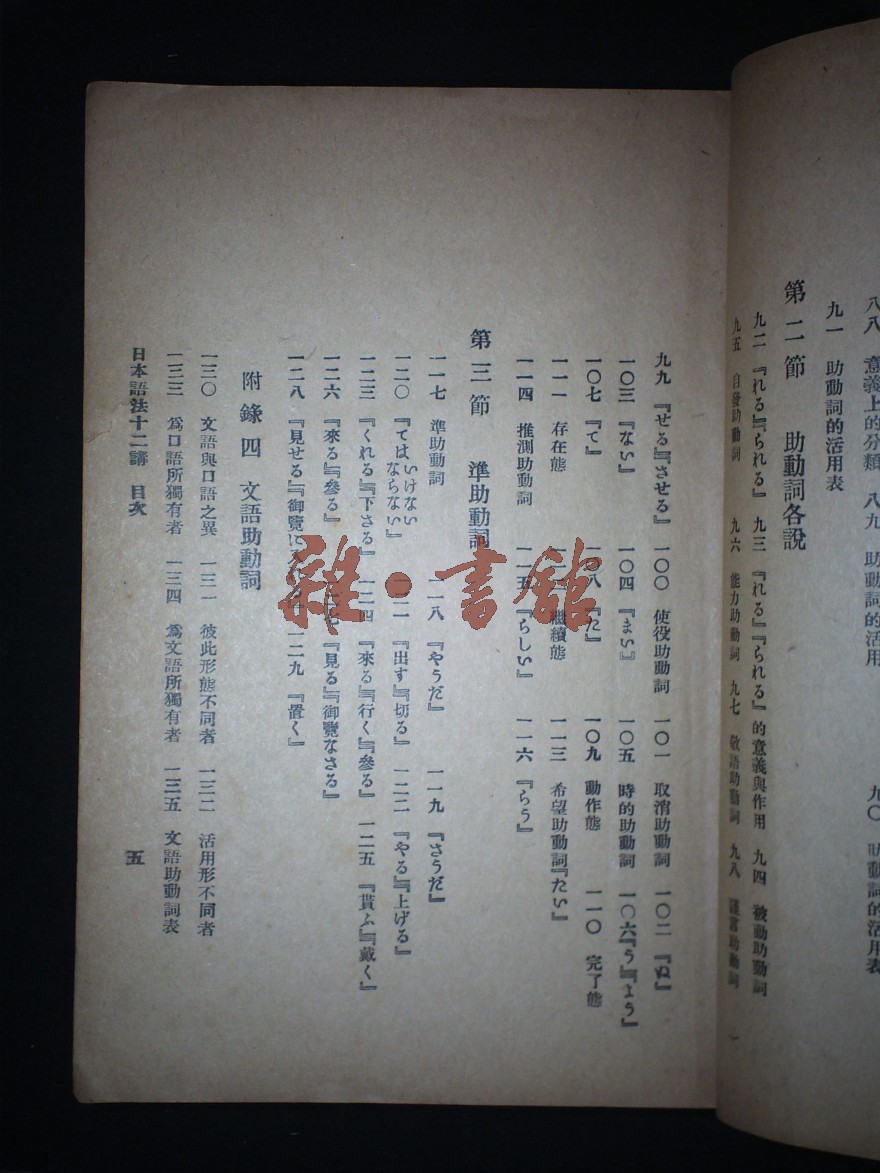 八八 意義上的分類 八九 助動詞的活用 九〇 助動詞的活用表
九一 助動詞的活用表
第二節 助動詞各說
九二 『れる』『られる』 九三 『れる』『られる』的意義與作用 九四 被動助動詞
九五 自發助動詞 九六 能力助動詞 九七 敬語助動詞 九八 助動詞
九九 『せる』『させる』 一〇〇 使役助動詞 一〇一 取消助動詞 一〇二 『ぬ』
一〇三 『ない』 一〇四 『まい』 一〇五 時的助動詞 一〇六 『う』『よう』
一〇七 『て』 一〇八 『た』 一〇九 動作態 一一〇 完了態
一一一 存在態 繼續態 一一三 希望助動詞『たい』
一一四 推測助動詞 一一五 『らしい』 一一六 『らう』
第三節 準助動詞
一一七 準助動詞 一一八 『やうだ』 一一九 『さうだ』
一二〇 『てはいけないならない』 一二一 『出す』『切る』 一二二 『やる』『上げる』
一二三 『くれる』『下さる』 一二四 『來る』『行く』『參る』 一二五 『貰ふ』『戴く』
一二六 『來る』『參る』 『見る』『御覽なさる』
一二八 『見せる』『御覽に る』 一二九 『置く』
附錄四 文語助動詞
一三〇 文語與口語之異 一三一 彼此形態不同者 一三二 活用形不同者
一三三 爲口語所獨有者 一三四 爲文語所獨有者 一三五 文語助動詞表
日本語法十二講 目次
五
雜·書館